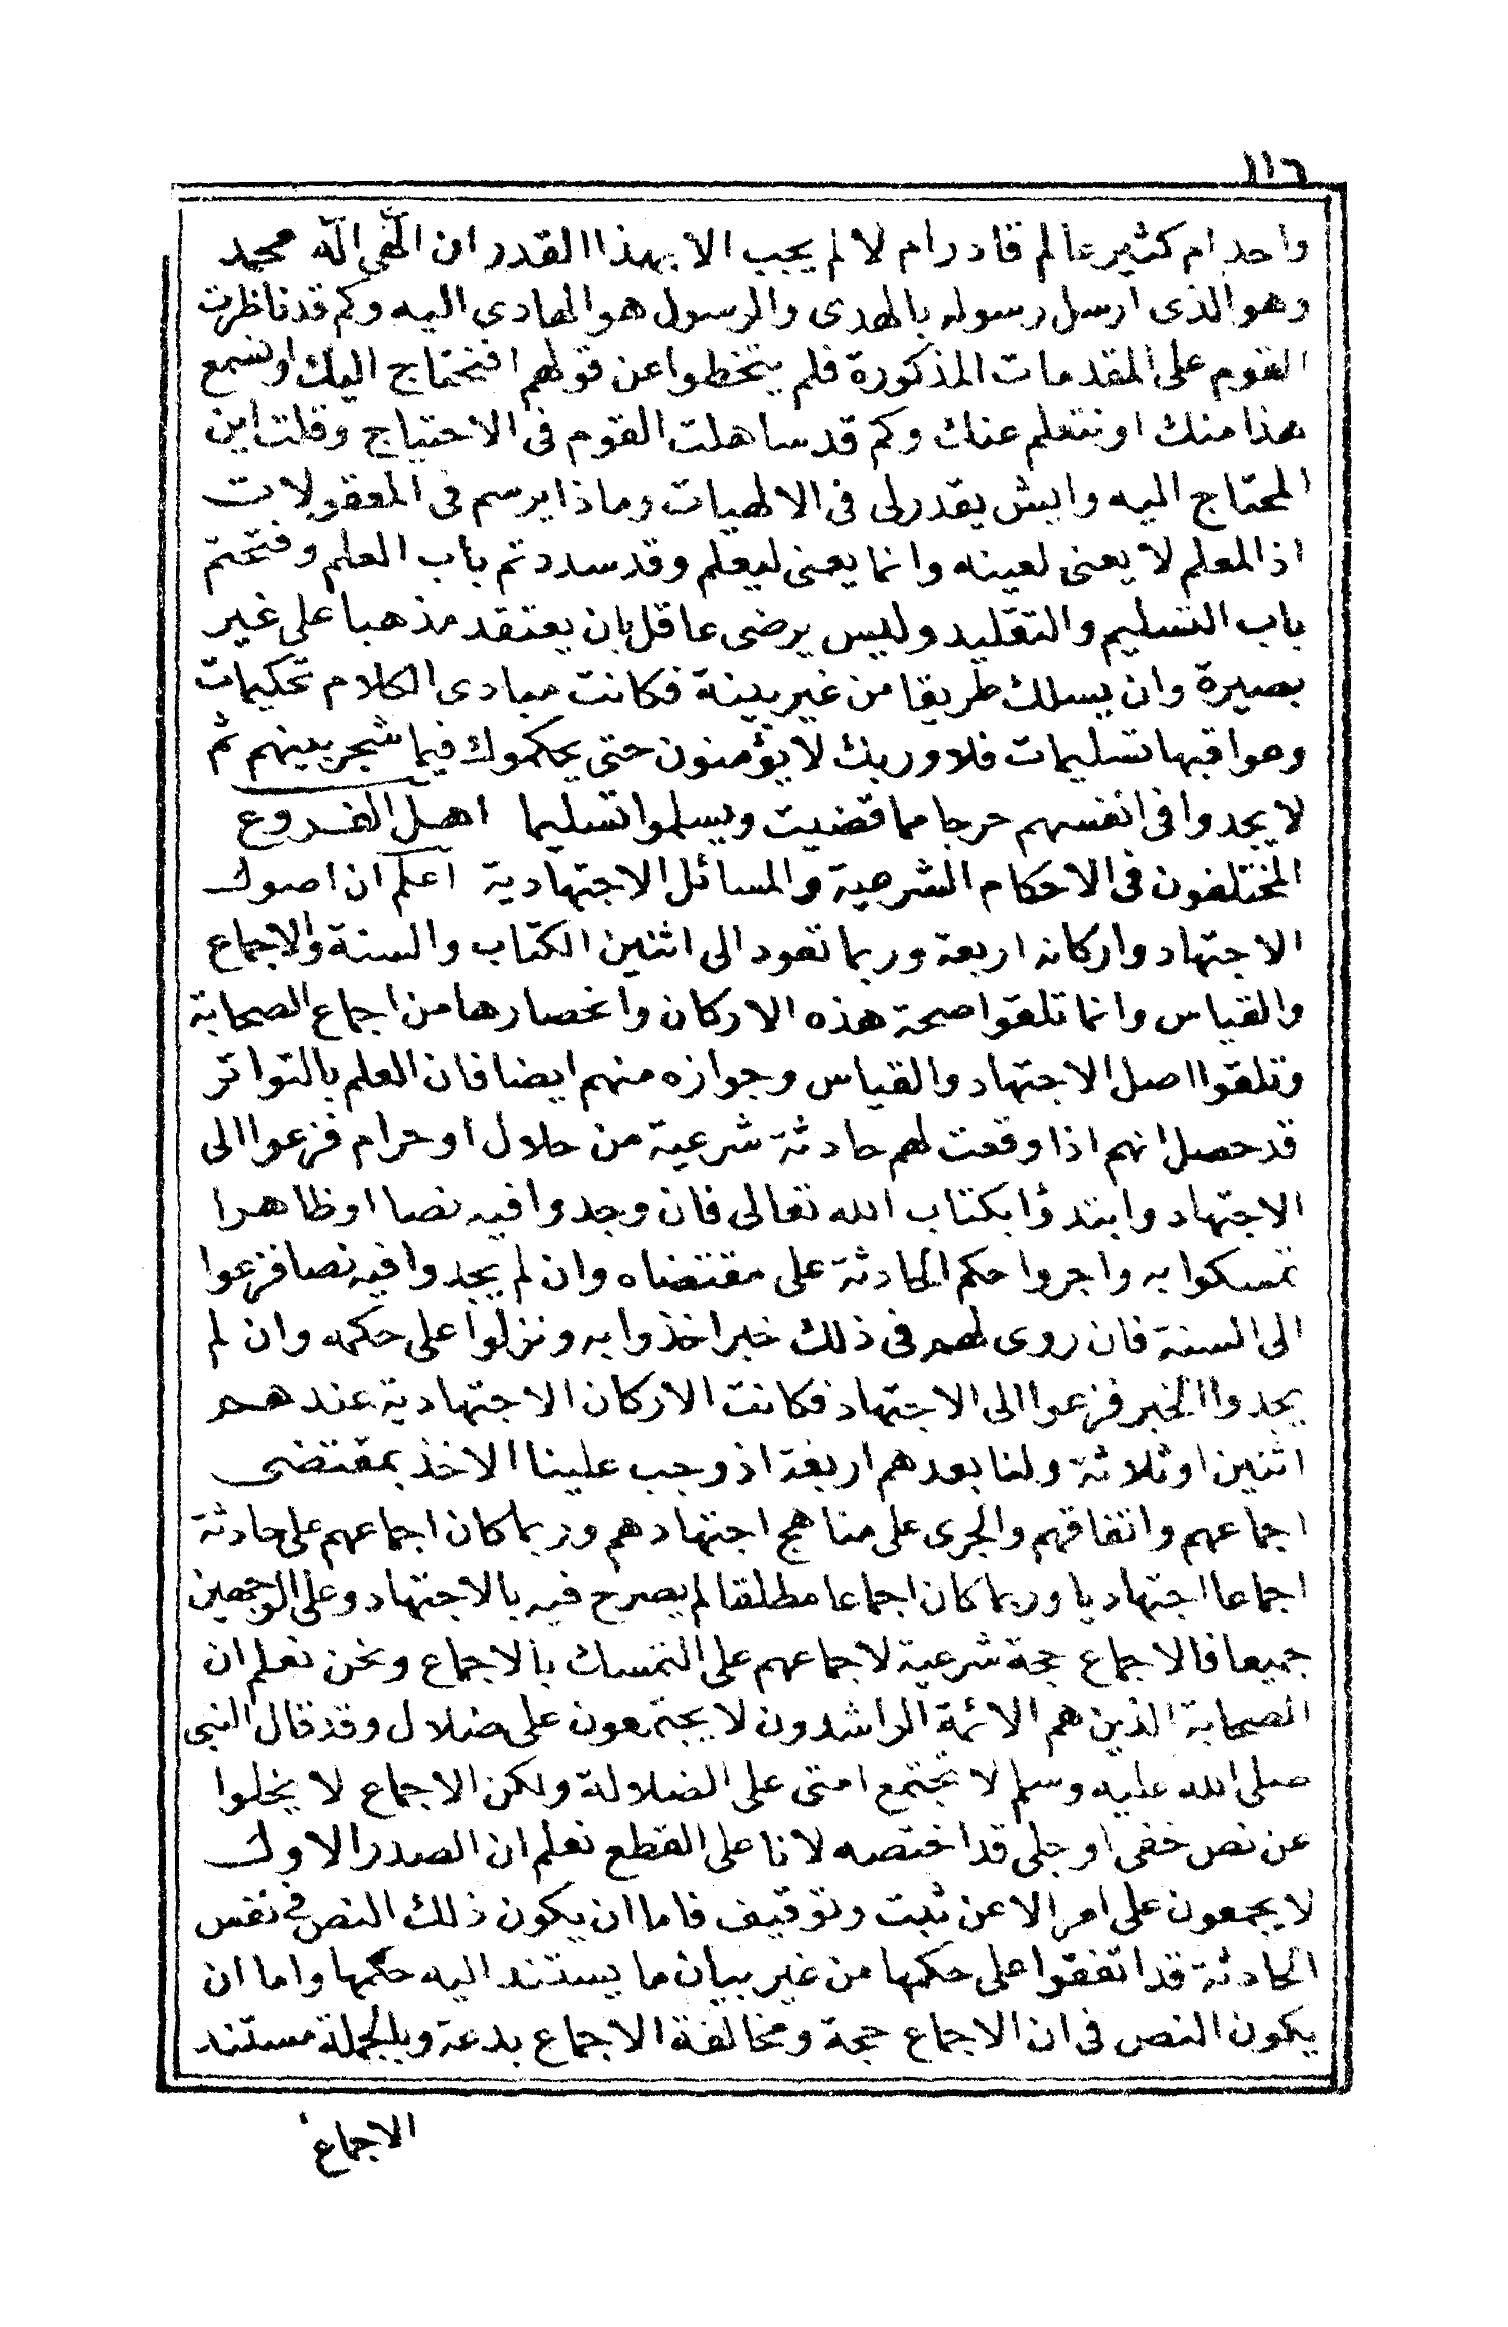 ١١٦
واحد ام كثير عالم قادر ام لا لم يجب الا بهذا القدر ان الٓهى الٓه محمد
وهو الذى ارسل رسوله بالهدى والرسول هو الهادى اليه وكم قد ناظرت
القوم على المقدمات المذكورة فلم يتخطوا عن قولهم افنحتاج اليك او نسمع
هذا منك او نتعلم عنك وكم قد ساهلت القوم فى الاحتياج وقلت اين
المحتاج اليه وايش يقدر لى فى الالهيات وماذا يرسم فى المعقولات
اذ المعلم لا يعنى لعينه وانما يعنى ليعلم وقد سددتم باب العلم وفتحتم
باب التسليم والتقليد وليس يرضى عاقل بان يعتقد مذهبا على غير
بصيرة وان يسلك طريقا من غير بينة فكانت مبادى الكلام تحكيمات
وعواقبها تسليمات فلا وربك لا يؤمنون حتى يحكموك فيما شجر بينهم ثم
لا يجدوا فى انفسهم حرجا مما قضيت ويسلموا تسليما اهل الفروع
المختلفون فى الاحكام الشرعية والمسائل الاجتهادية اعلم ان اصول
الاجتهاد واركانه اربعة وربما تعود الى اثنين الكتاب والسنة والاجماع
والقياس وانما تلقوا صحة هذه الاركان وانحصارها من اجماع الصحابة
وتلقوا اصل الاجتهاد والقياس وجوازه منهم ايضا فان العلم بالتواتر
قد حصل انهم اذا وقعت لهم حادثة شرعية من حلال او حرام فزعوا الى
الاجتهاد وابتدؤا بكتاب الله تعالى فان وجدوا فيه نصا او ظاهرا
تمسكوا به واجروا حكم الحادثة على مقتضاه وان لم يجدوا فيه نصا فزعوا
الى السنة فان روى لهم فى ذلك خبر اخذوا به ونزلوا على حكمه وان لم
يجدوا الخبر فزعوا الى الاجتهاد فكانت الاركان الاجتهادية عندهم
اثنين او ثلاثة ولنا بعدهم اربعة اذ وجب علينا الاخذ بمقتضى
اجماعهم واتفاقهم والجرى على مناهج اجتهادهم وربما كان اجماعهم على حادثة
اجماعا اجتهاديا وربما كان اجماعا مطلقا لم يصرح فيه بالاجتهاد وعلى الوجهين
جميعا فالاجماع حجة شرعية لاجماعهم على التمسك بالاجماع ونحن نعلم ان
الصحابة الذين هم الائمة الراشدون لا يجتمعون على ضلال وقد قال النبى
صلى الله عليه وسلم لا تجتمع امتى على الضلالة ولكن الاجماع لا يخلوا
عن نص خفى او جلى قد اختصه لانا على القطع نعلم ان الصدر الاول
لا يجمعون على امر الا عن ثبت وتوقيف فاما ان يكون ذلك النص فى نفس
الحادثة قد اتفقوا على حكمها من غير بيان ما يستند اليه حكمها واما ان
يكون النص فى ان الاجماع حجة ومخالفة الاجماع بدعة وبالجملة مستند
الاجماع